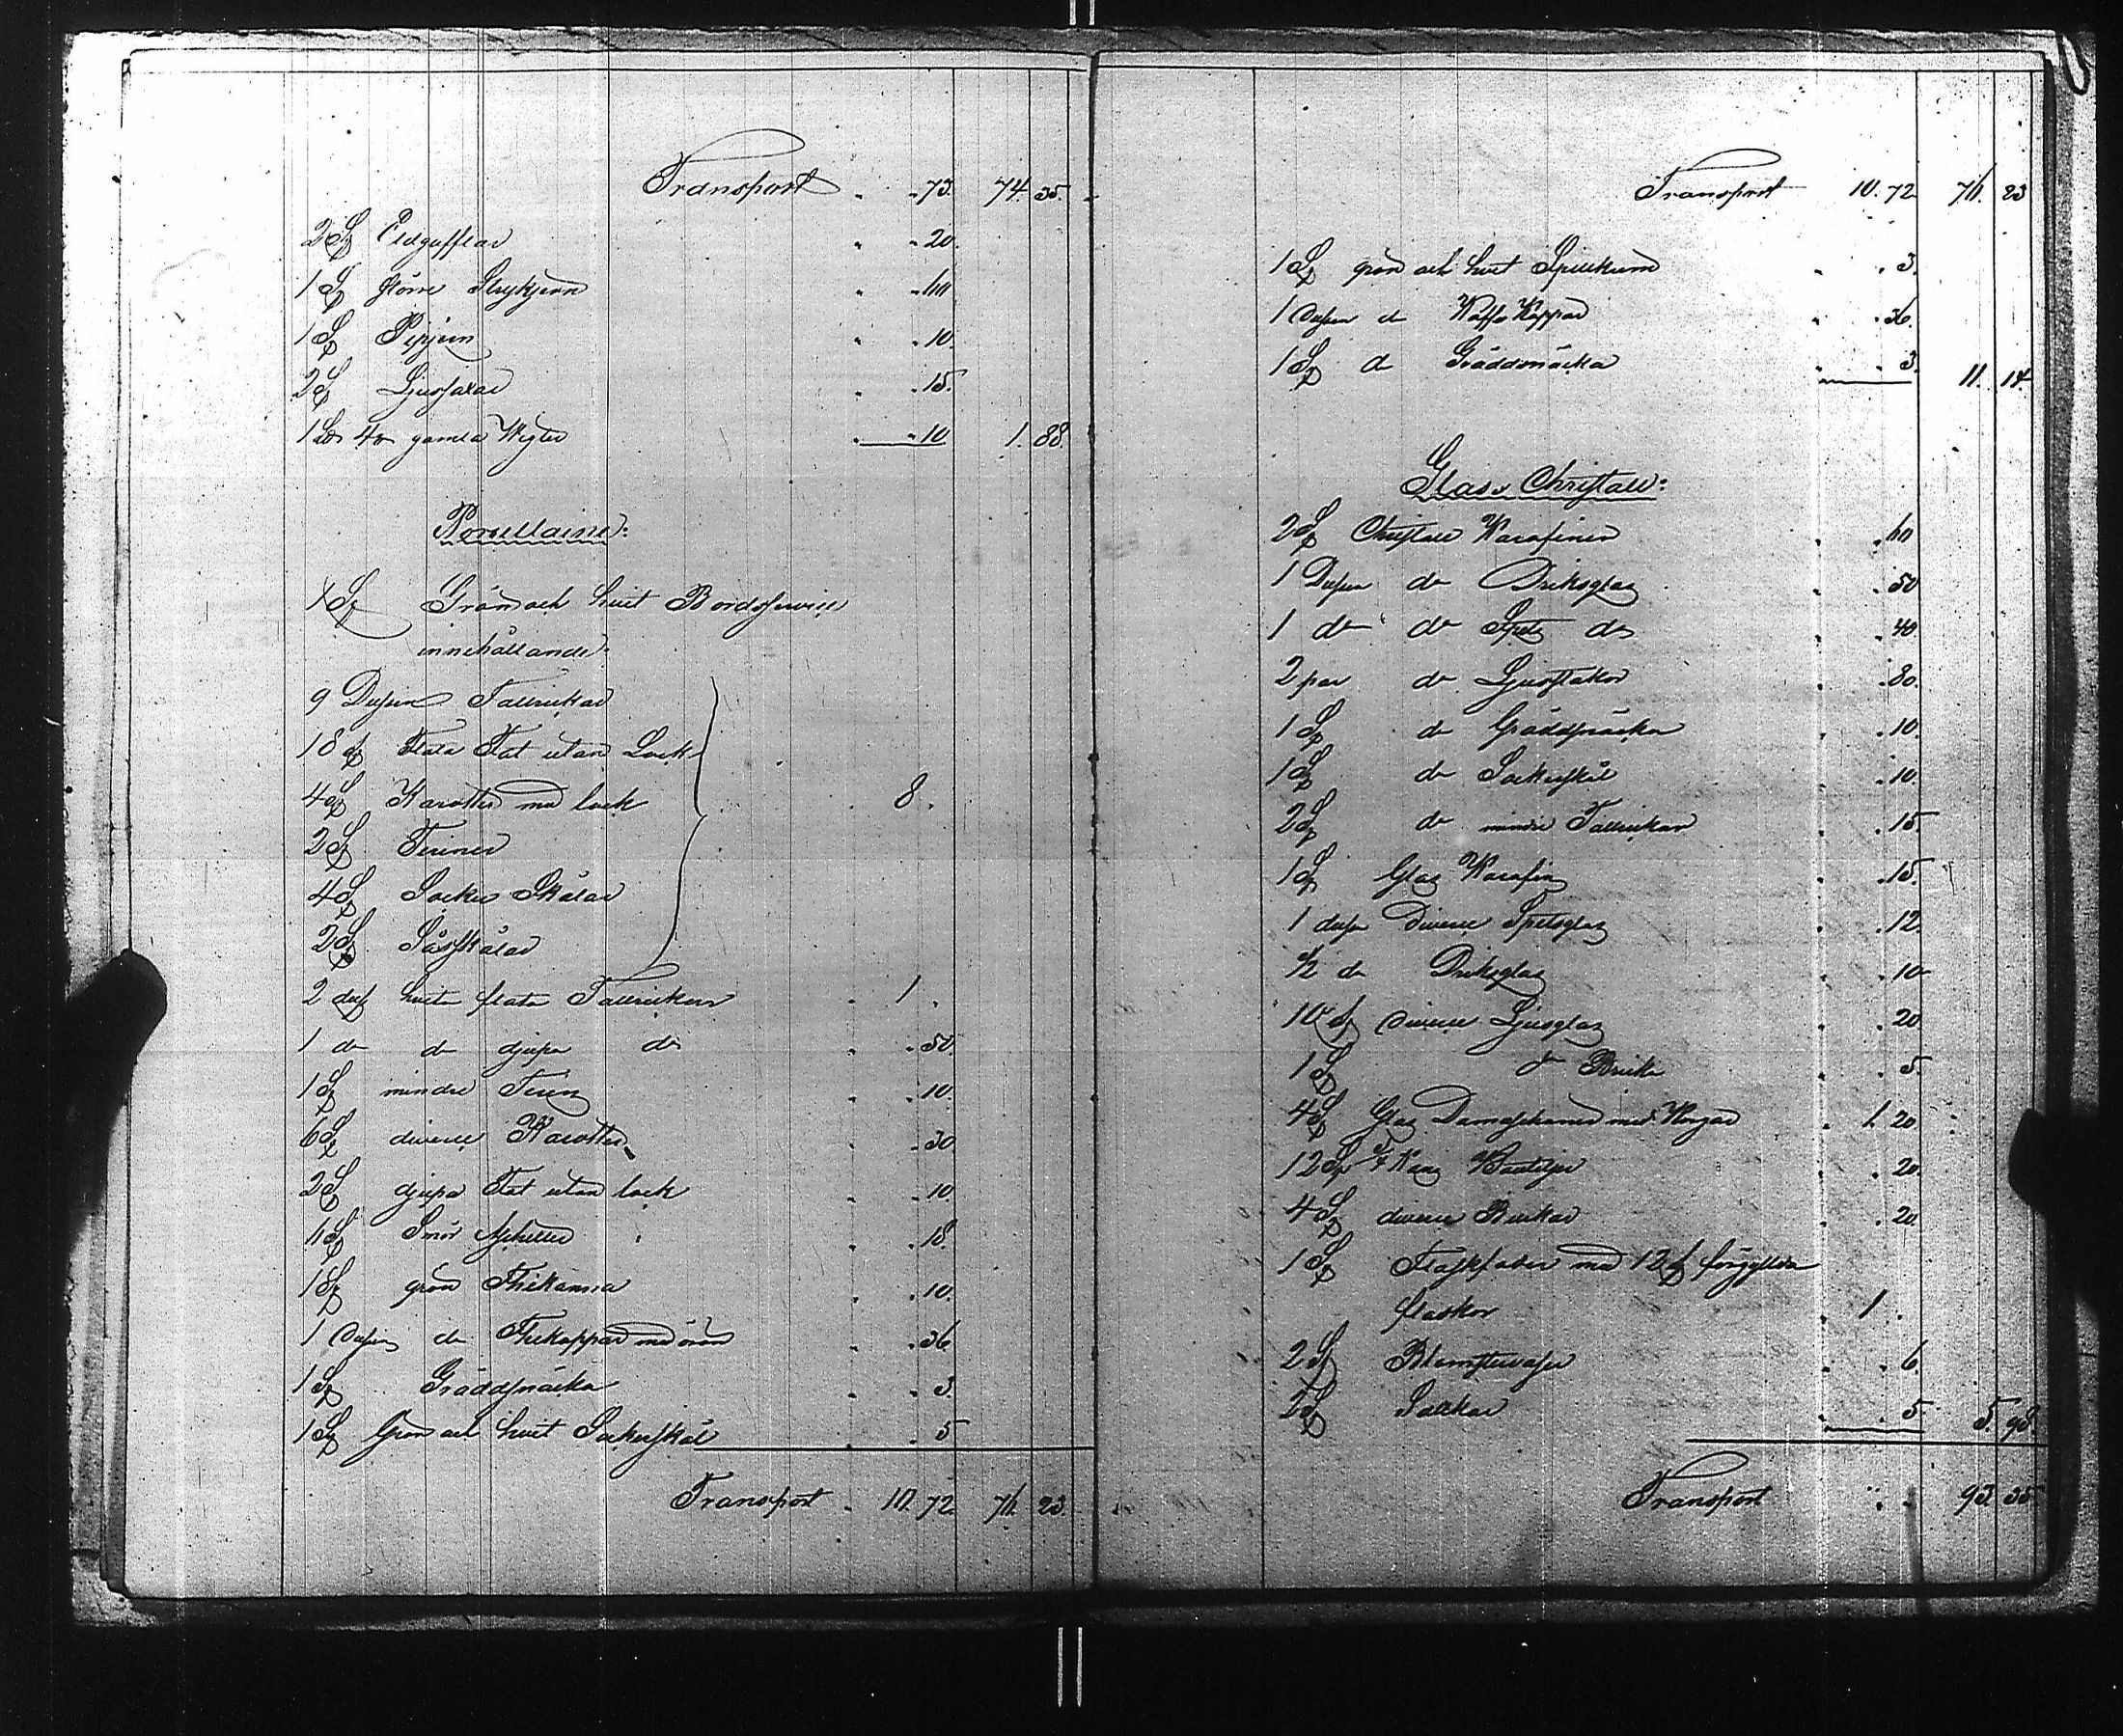 Transport " " 73. 74. 35.
2 St Eldgafflar " " 20.
1 St större Strykjern " " 60
1 St Pipjern " " 10.
2 St Ljussaxar " " 15.
1 L℔ 4 ℔ gamla Wigter " " 10 1. 88.
Porcellaine:
1 St Grön och hvit Bordservice
innehållande:
9 Dusin Tallrickar
18 st Flata Fat utan Lock
4 St Karotter med lock 8.
2 St Teriner
4 St Socker Skålar
2 St Såsskålar
2 dus hvita flata Tallrickar " 1 "
1 do do djupa do " " 50.
1 St mindre Terin " " 10.
6 St diverse Karotter " " 30.
2 St djupa Fat utan lock " " 10.
6 St Smör Assietter " " 18.
1 St grön Thekanna " " 10.
1 Dusin do Thekoppar med öron " " 36
1 St Gräddsnäcka " " 3.
1 St Grön och hvit Sockerskål " " 5
Transport " 10. 72. 76. 23.
Transport 10. 72 76. 23
1 St grön och hvit Spillkum " " 3.
1 Dusin do Kaffe Koppar " " 36.
1 St do Gräddsnäcka " " 3. 11. 14
Glas o Christall:
2 St Christall Karafiner " " 60
1 Dusin do Dricksglas " " 50
1 do do Spets do " " 40.
2 par do Ljusstakar " 80.
1 St do Gräddsnäcka " " 10.
1 St do Sockerskål " " 10.
2 St do mindre Tallrickar " " 15.
1 St Glas Karafin " " 15.
1 dusin Diverse Spetsglas " " 12.
1/2 do Dricksglas " " 10
10 st diverse Ljusglas " " 20.
1 St do Bricka " " 5.
4 St Glas Damejeanner med Korgar " 1. 20
12 St Kans Bouteljer " " 20.
4 St diverse Burkar " " 20.
1 St Flaskfoder med 12 st förgyllda
flaskor " 1 "
2 St Blomstervaser " " 6
2 St Saltkar " " 5 5. 98.
Transport " " 93. 35